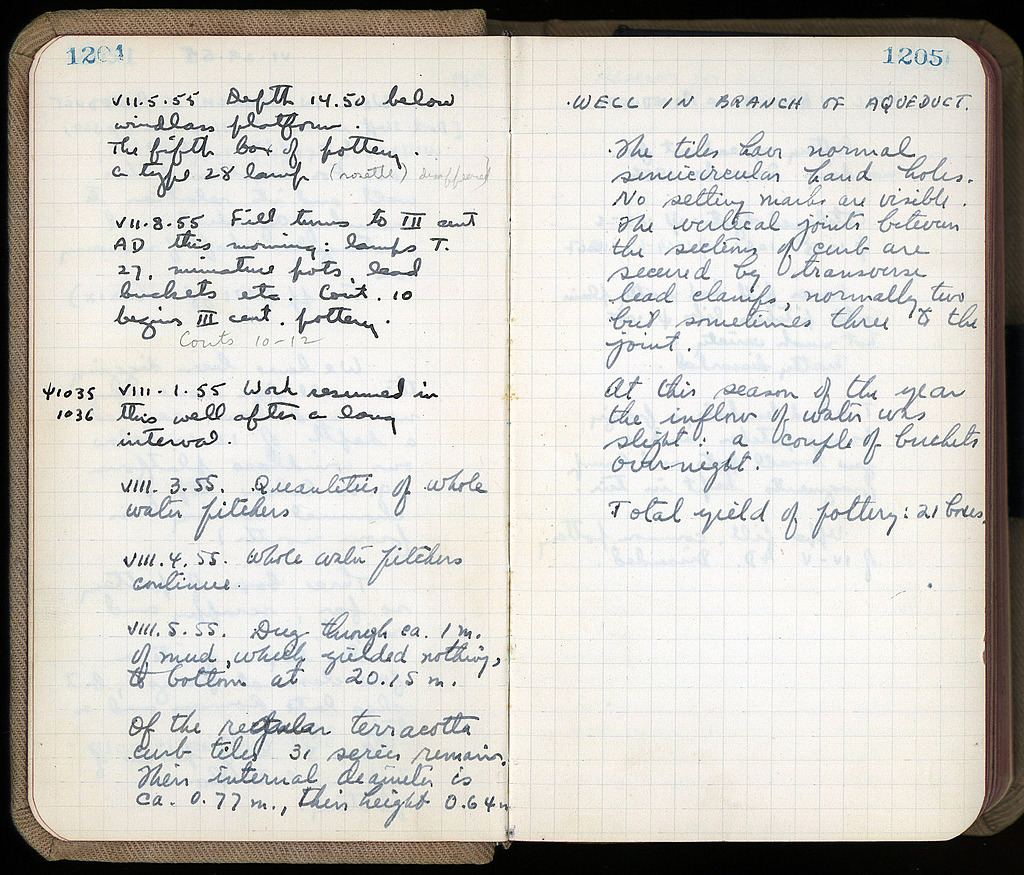 1204
VII.5.55 Depth 14.50 below
windlass platform.
The fifth box of pottery.
a type 28 lamp (rosette) disappeared
VII.8.55 Fill turns to III cent
AD this morning: lamps T.
27, miniature pots, lead
buckets etc. Cont. 10
begins III cent. pottery.
Conts 10-12
1035 VIII.1.55 Work resumed in
1036 this well after a long
interval.
VIII.3.55. Quantities of whole
water pitchers
VIII.4.55. Whole water pitchers
continue.
VIII.5.55. Dug through ca. 1 m.
of mud, which yielded nothing,
to bottom at 20.15 m.
Of the regular terracotta
curb tiles 31 series remains.
Their internal diameter is
ca. 0.77 m., their height 0.64m
1205
WELL IN BRANCH OF AQUEDUCT.
The tiles have normal
semicircular hand holes.
No setting marks are visible.
The vertical joints between
the sections of curb are
secured by transverse
lead clamps, normally two
but sometimes three to the
joint.
At this season of the year
the inflow of water was
slight: a couple of buckets
overnight.
Total yield of pottery: 21 boxes.